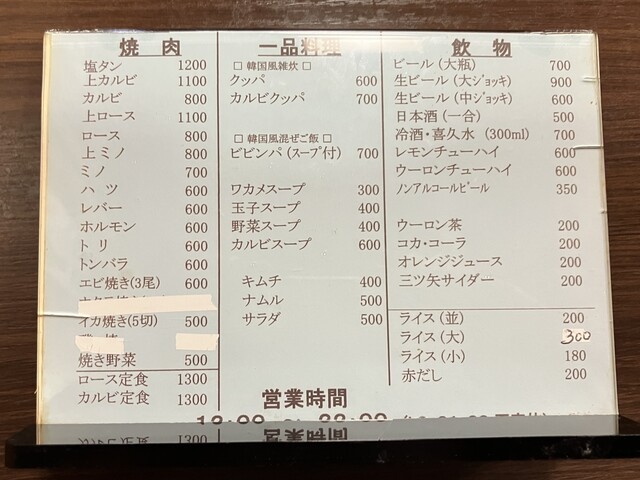 焼肉
塩タン 1200
上カルビ 1100
カルビ 800
上ロース 1100
ロース 800
上ミノ 800
ミノ 700
ハツ 600
レバー 600
ホルモン 600
トリ 600
トンバラ 600
エビ焼き(3尾) 600
イカ焼き(5切) 500
焼き野菜 500
ロース定食 1300
カルビ定食 1300
一品料理
□ 韓国風雑炊 □
クッパ 600
カルビクッパ 700
□ 韓国風混ぜご飯 □
ビビンパ(スープ付) 700
ワカメスープ 300
玉子スープ 400
野菜スープ 400
カルビスープ 600
キムチ 400
ナムル 500
サラダ 500
飲物
ビール(大瓶) 700
生ビール(大ジョッキ) 900
生ビール(中ジョッキ) 600
日本酒(一合) 500
冷酒・喜久水 (300ml) 700
レモンチューハイ 600
ウーロンチューハイ 600
ノンアルコールビール 350
ウーロン茶 200
コカ・コーラ 200
オレンジジュース 200
三ツ矢サイダー 200
ライス(並) 200
ライス(大) 300
ライス(小) 180
赤だし 200
営業時間